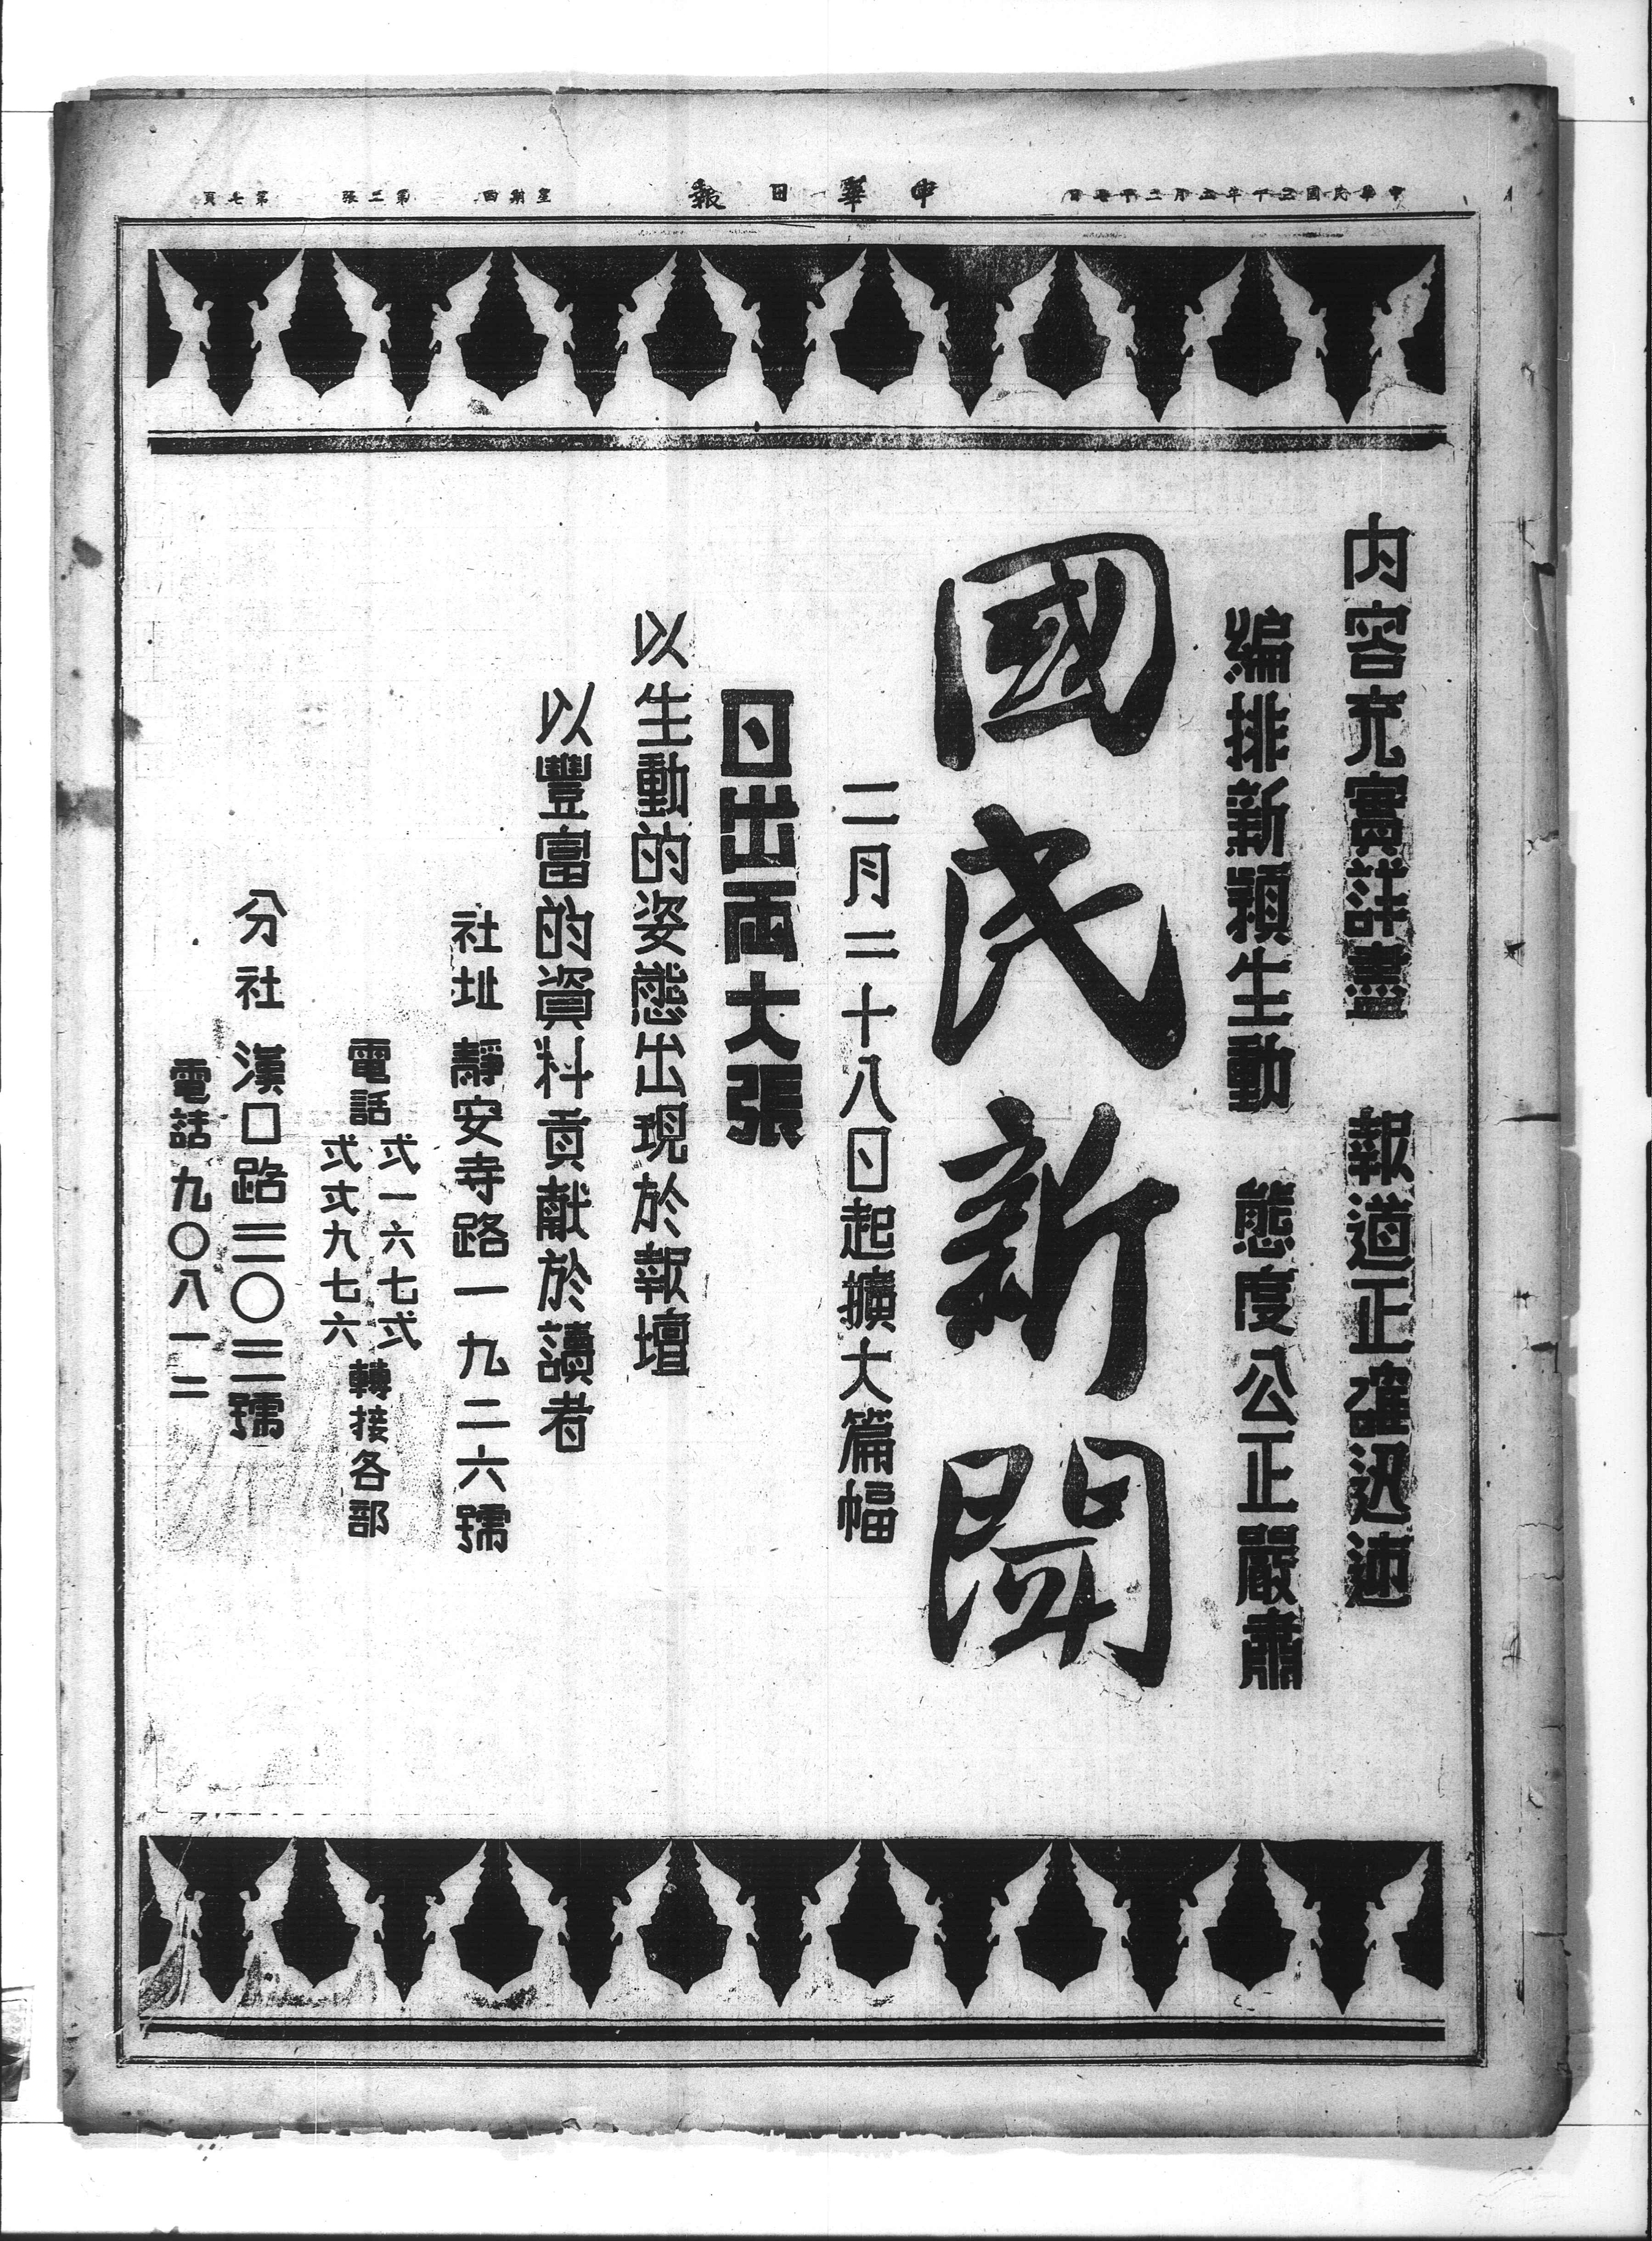 中華民國三十年二月二十七日
中華日報
星期四
第二張
第七頁
內容充實詳盡　報道正確迅速
編排新穎生動　態度公正嚴肅
國民新聞
二月二十八日起擴大篇幅
日出兩大張
以生動的姿態出現於報壇
以豐富的資料貢獻於讀者
社址　靜安寺路一九二六號
電話　弍一六七弍
弍弍九七六　轉接各部
分社　漢口路三〇三號
電話九〇八一二